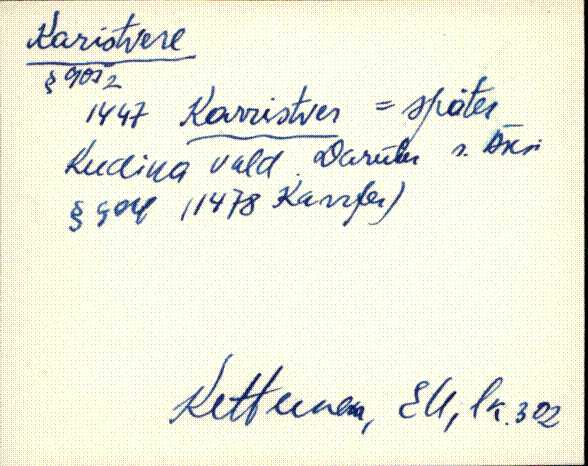 Karistvere
§ 905 2
1447 Karristver = später
Kudina vald. Darüber s. Äksi
§ 904 (1478 Karrfer)
Kettunen, EU, lk. 302